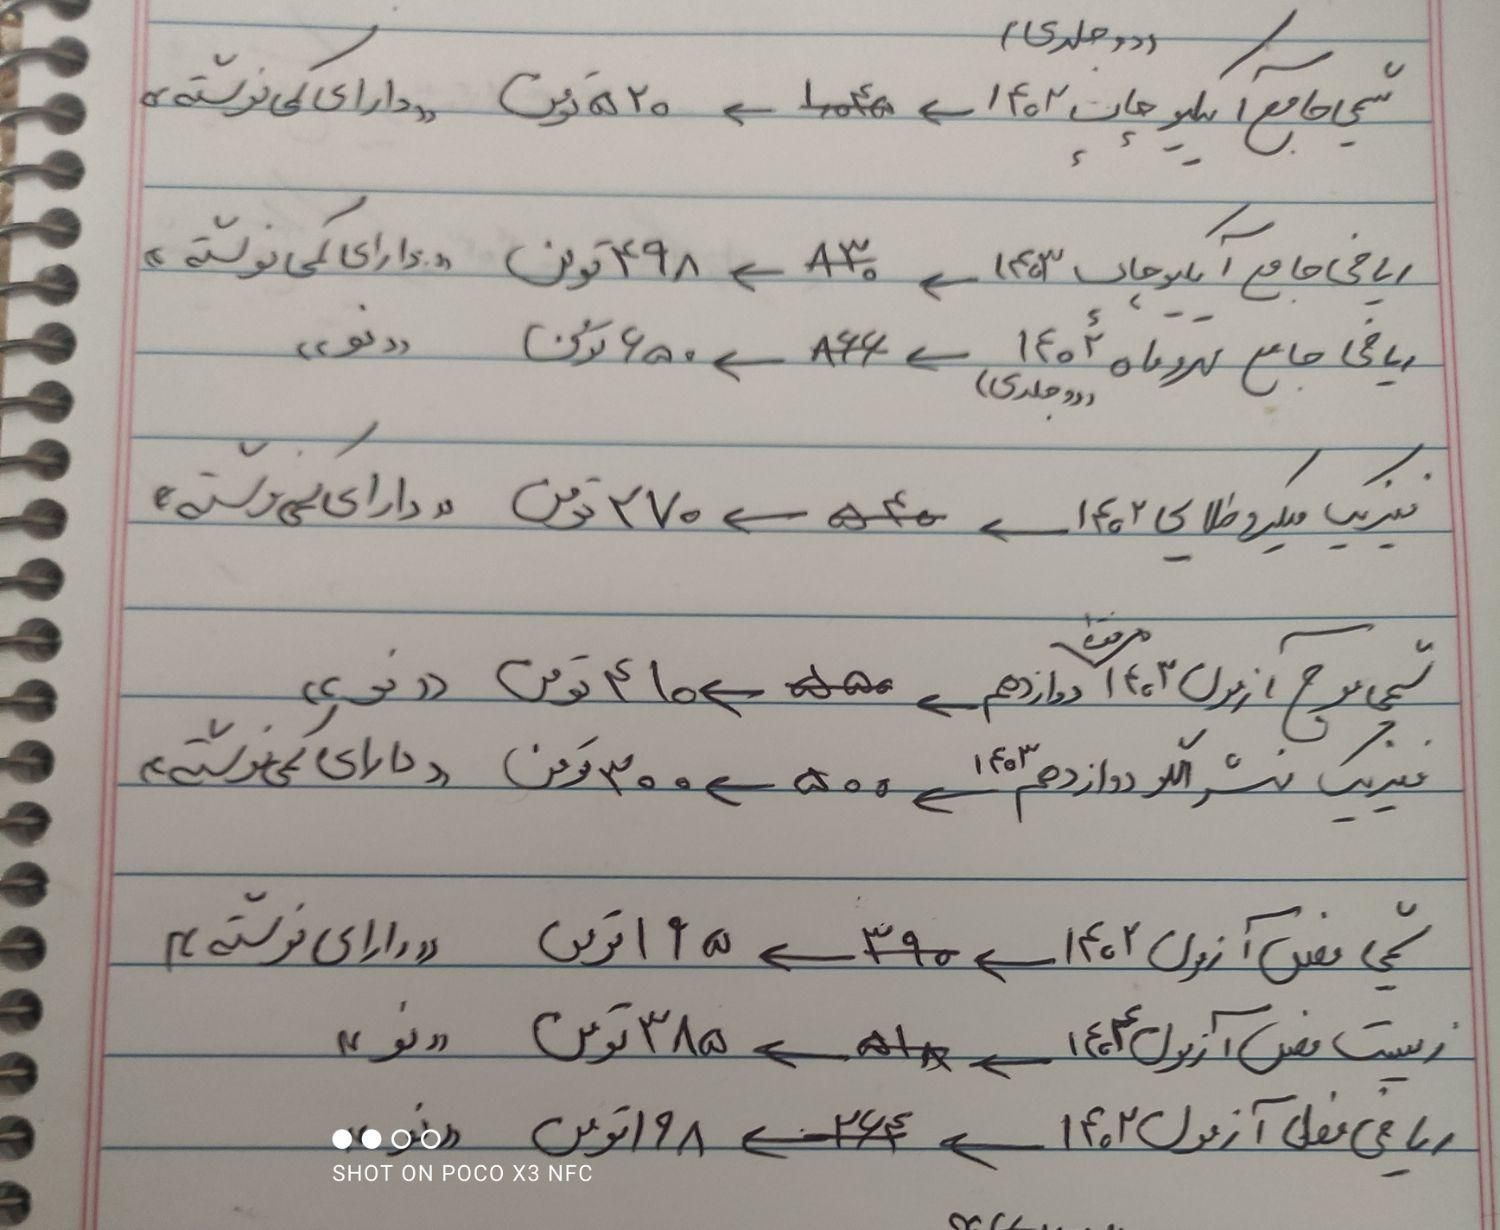 (دو جلدی)
شیمی جامع آیکیو چاپ ۱۴۰۲ ← ۱۰۴۵ ← ۵۲۰ تومن «دارای کمی نوشته»
ریاضی جامع آیکیو چاپ ۱۴۰۳ ← ۸۳۰ ← ۴۹۸ تومن «دارای کمی نوشته»
ریاضی جامع مهروماه ۱۴۰۲ ← ۸۶۶ ← ۶۵۰ تومن «نو»
(دو جلدی)
فیزیک میکرو طلایی ۱۴۰۲ ← ۵۴۰ ← ۲۷۰ تومن «دارای کمی نوشته»
شیمی موج آزمون ۱۴۰۳ دوازدهم ← ۵۵۰ ← ۴۱۰ تومن «نو»
فیزیک نشر الگو دوازدهم ۱۴۰۳ ← ۵۰۰ ← ۳۰۰ تومن «دارای کمی نوشته»
شیمی فصل آزمون ۱۴۰۲ ← ۳۹۰ ← ۱۹۵ تومن «دارای نوشته»
زیست فصل آزمون ← ← ۳۸۵ تومن «نو»
ریاضی فصل آزمون ۱۴۰۲ ← ۲۶۴ ← ۱۹۸ تومن «نو»
SHOT ON POCO X3 NFC